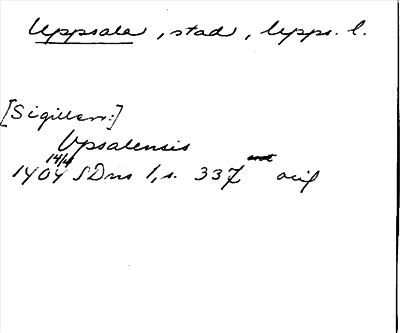 Uppsala, stad, Upps. l.
[Sigillum:]
Upsalensis
1404 14/4 SDns 1, s. 337 orig